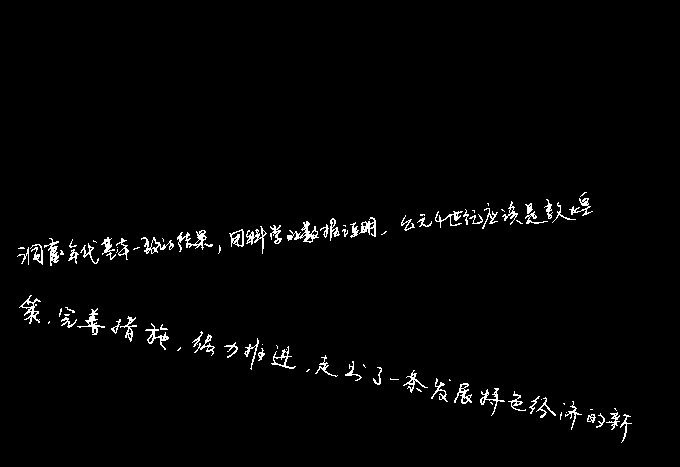 洞窟年代基本一致的结果，用科学的数据证明、公元4世纪应该是敦煌
策、完善措施，强力推进，走出了一条发展特色经济的新